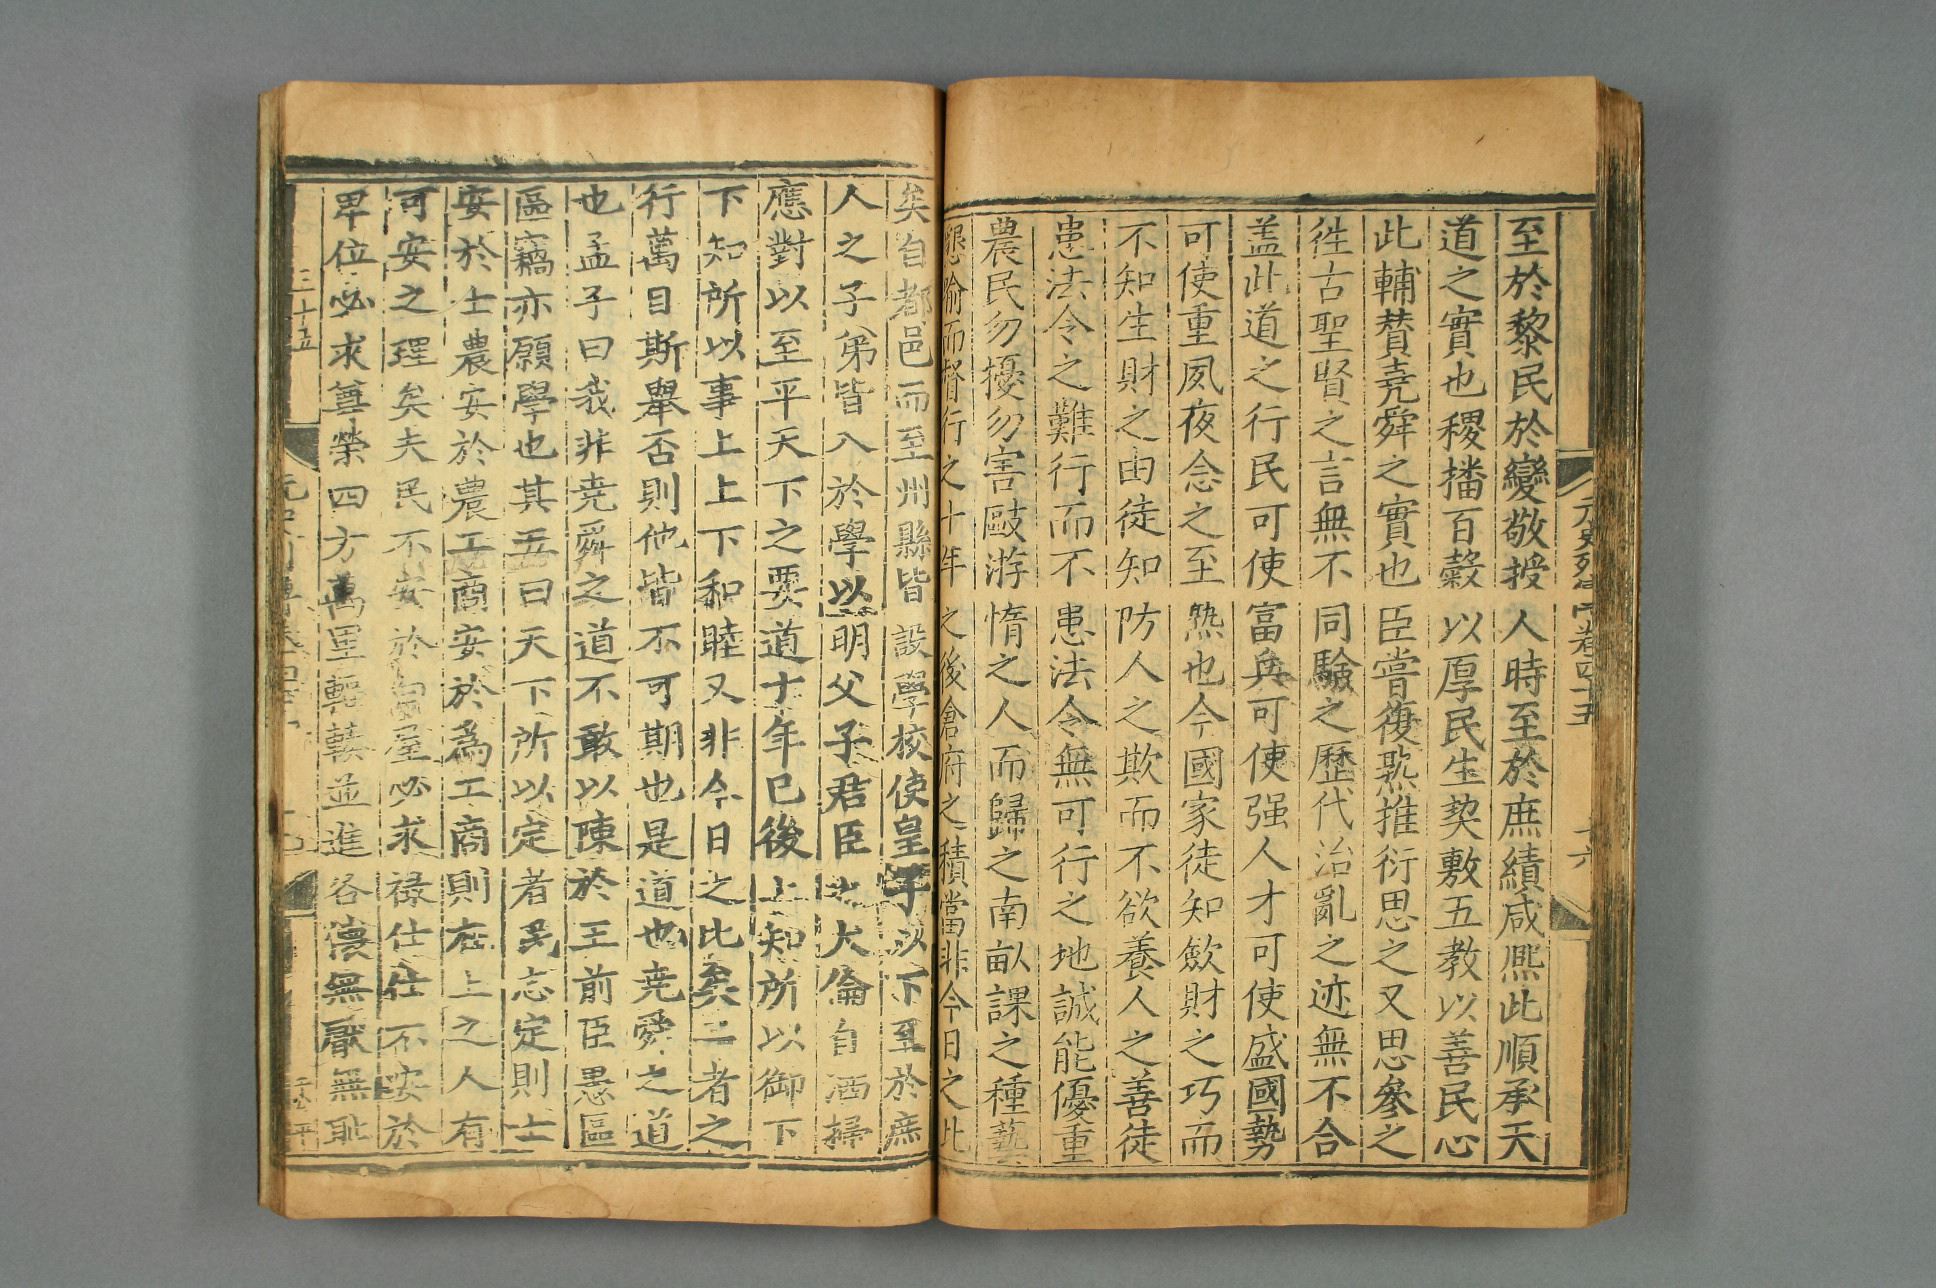 至於黎民於變敬授人時至於庶績咸熈此順承天
道之實也稷播百糓以厚民生契敷五教以善民心
此輔賛堯舜之實也臣嘗復熟推衍思之又思參之
徃古聖賢之言無不同驗之歷代治亂之迹無不合
盖此道之行民可使富兵可使强人才可使盛國勢
可使重夙夜念之至熟也今國家徒知歛財之巧而
不知生財之由徒知防人之欺而不欲養人之善徒
患法令之難行而不患法令無可行之地誠能優重
農民勿擾勿害敺游惰之人而歸之南畝課之種藝
懇喻而督行之十年之後倉府之積當非今日之比
元史列傳卷四十五
十六
矣自都邑而至州縣皆設學校使皇子以下至於庶
人之子弟皆入於學以明父子君臣之大倫自洒掃
應對以至平天下之要道十年已後上知所以御下
下知所以事上上下和睦又非今日之比矣二者之
行萬目斯舉否則他皆不可期也是道也堯舜之道
也孟子曰我非堯舜之道不敢以陳於王前臣愚區
區竊亦願學也其五曰天下所以定者民志定則士
安於士農安於農工商安於為工商則在上之人有
可安之理矣夫民不安於白屋必求禄仕仕不安於
卑位必求尊榮四方萬里輻輳並進各懷無厭無恥
三十五